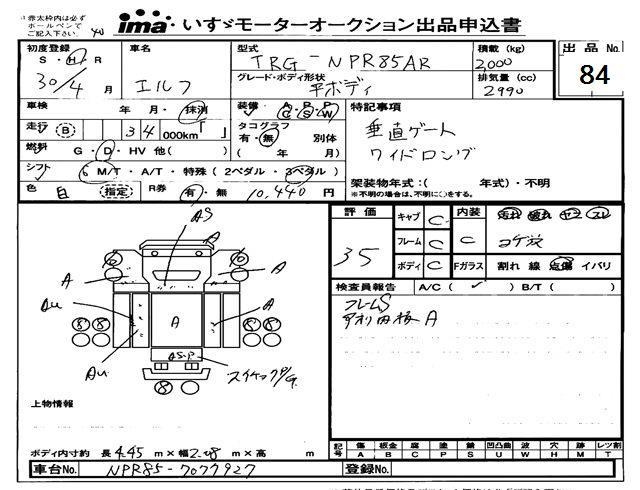 ※赤太枠内は必ず
ボールペンで
ご記入下さい。
ima いすゞモーターオークション出品申込書
初度登録 車名 型式 積載 (kg) 出品 No.
S・H・R エルフ TRG-NPR85AR 3000 84
30/4月 グレード・ボディ形状 排気量 (cc)
平ボディ 2990
車検 年 月・抹消 装備・A・P・P C S W 特記事項
走行 B 34 000km「 」 タコグラフ 有・無 別体 垂直ゲート
燃料 G・D・HV 他( ) ( 年 月) ワイドロング
シフト 6 M/T・A/T・特殊 (2ペダル・3ペダル) 架装物年式:( 年式)・不明
色 白 指定 R券 有・無 10,440円 ※不明の場合は、不明に○をする。
評価 キャブ C 内装 汚れ 破れ ヤニ スレ
35 フレーム C C コゲ
ボディ C Fガラス 割れ 線 点傷 イバリ
検査員報告 A/C( ✓ ) B/T( )
フレームS
A
AS
A
A
A
AU
A
A
AU
AS.P
上物情報
ボディ内寸約 長 4.45 m×幅 2.08 m×高 m
記号 傷 板金 花 塗 錆 凹凸曲 波 穴 無 レツ割
A B K P S U W H M T
車台No. NPR85-7077927 登録No.